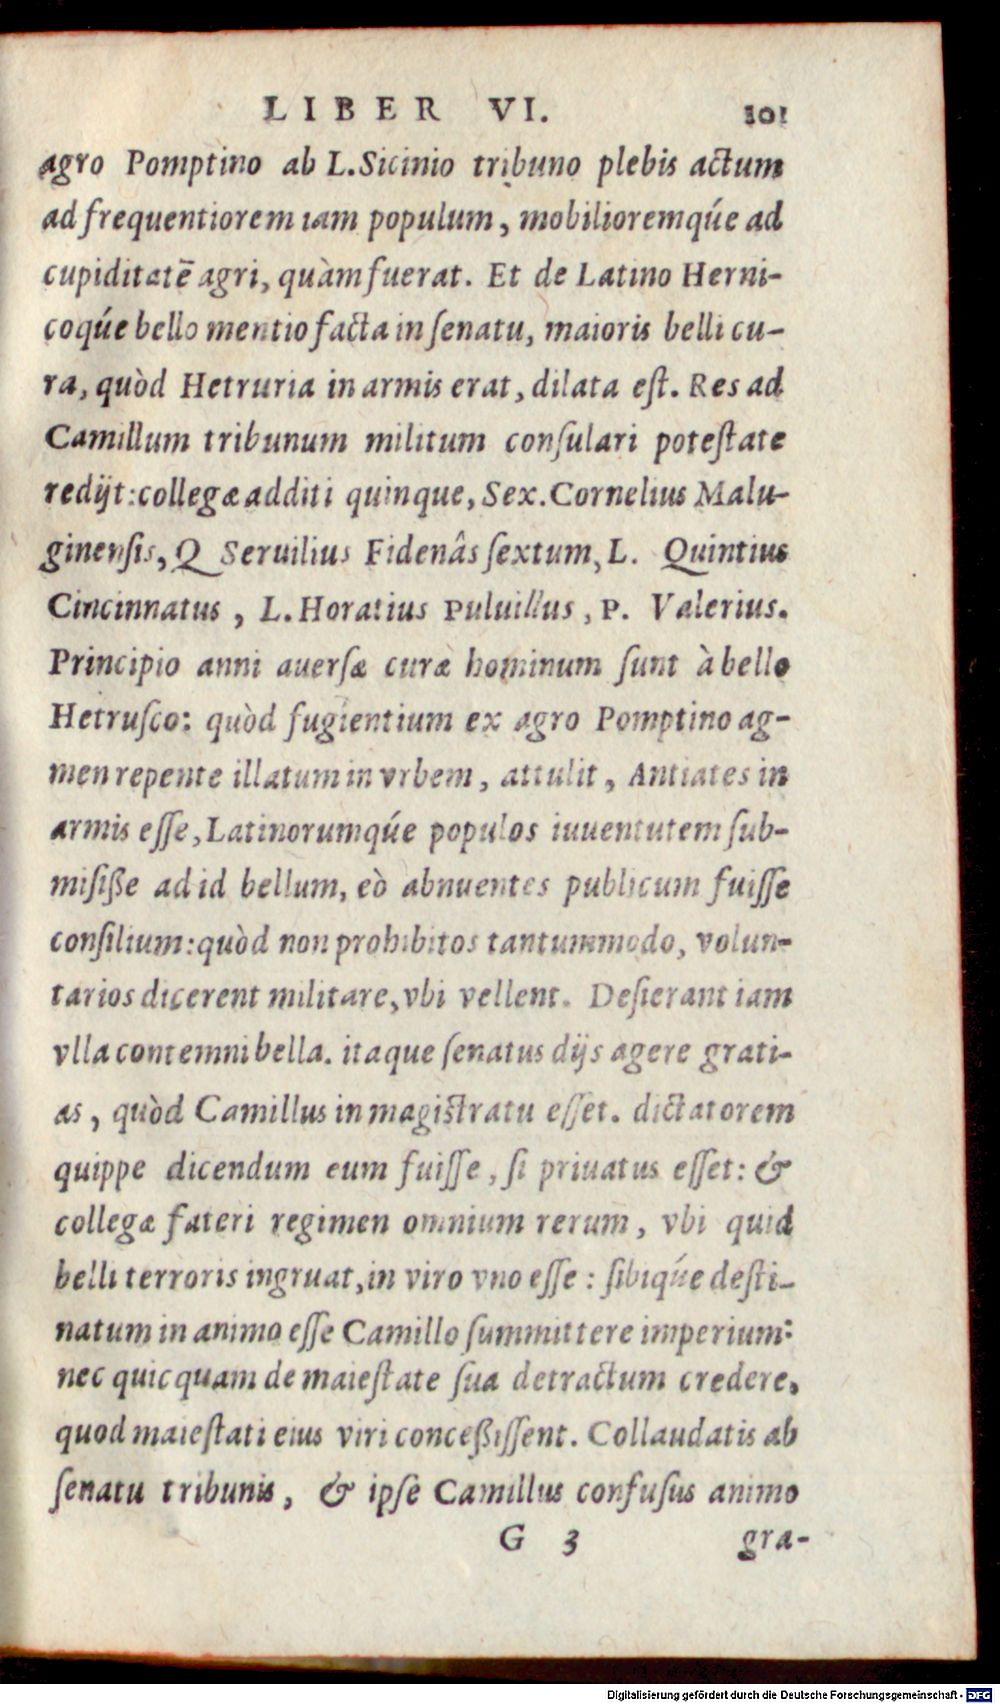 LIBER VI. 101
agro Pomptino ab L. Sicinio tribuno plebis actum
ad frequentiorem iam populum, mobilioremqúe ad
cupiditatē agri, quàm fuerat. Et de Latino Herni-
coqúe bello mentio facta in ſenatu, maioris belli cu-
ra, quòd Hetruria in armis erat, dilata eſt. Res ad
Camillum tribunum militum conſulari poteſtate
redijt: collegæ additi quinque, Sex. Cornelius Malu-
ginenſis, Q Seruilius Fidenâs ſextum, L. Quintius
Cincinnatus, L. Horatius Puluillus, P. Valerius.
Principio anni auerſæ curæ hominum ſunt à bello
Hetruſco: quòd fugientium ex agro Pomptino ag-
men repente illatum in vrbem, attulit, Antiates in
armis eſſe, Latinorumqúe populos iuuentutem ſub-
miſiße ad id bellum, eò abnuentes publicum fuiſſe
conſilium: quòd non prohibitos tantummodo, volun-
tarios dicerent militare, vbi vellent. Deſierant iam
vlla contemni bella. itaque ſenatus dijs agere grati-
as, quòd Camillus in magiſtratu eſſet. dictatorem
quippe dicendum eum fuiſſe, ſi priuatus eſſet: &
collegæ fateri regimen omnium rerum, vbi quid
belli terroris ingruat, in viro vno eſſe: ſibiqúe deſti-
natum in animo eſſe Camillo ſummittere imperium:
nec quicquam de maieſtate ſua detractum credere,
quod maieſtati eius viri conceßiſſent. Collaudatis ab
ſenatu tribunis, & ipſe Camillus confuſus animo
G 3 gra-
Digitalisierung gefördert durch die Deutsche Forschungsgemeinschaft - DFG